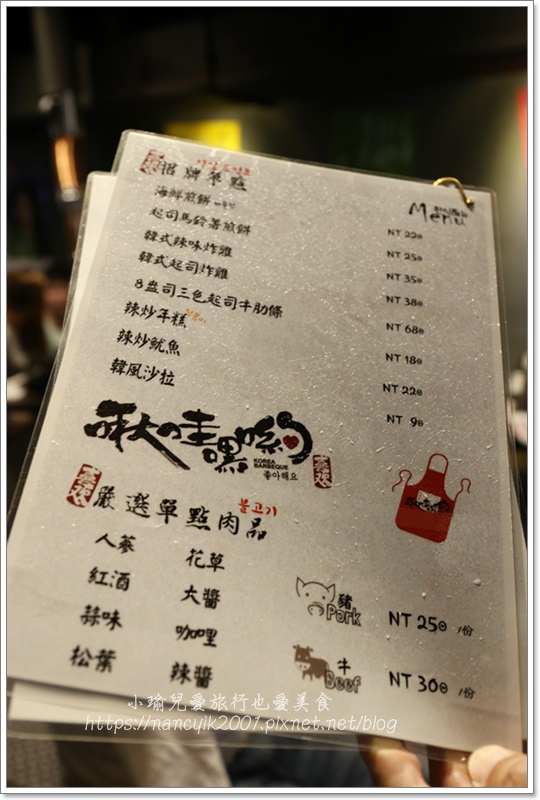 招牌單點
Menu
海鮮煎餅 NT 220
起司馬鈴薯煎餅 NT 250
韓式辣味炸雞 NT 350
韓式起司炸雞 NT 380
8盎司三色起司牛肋條 NT 680
辣炒年糕 NT 180
辣炒魷魚 NT 220
韓風沙拉 NT 90
啾哇嘿喲
KOREA
BARBEQUE
좋아해요
嚴選單點肉品 불고기
人蔘 花草
紅酒 大醬
蒜味 咖哩
松葉 辣醬
豬 Pork NT 250 /份
牛 Beef NT 300 /份
小瑜兒愛旅行也愛美食
https://nancylk2007.pixnet.net/blog